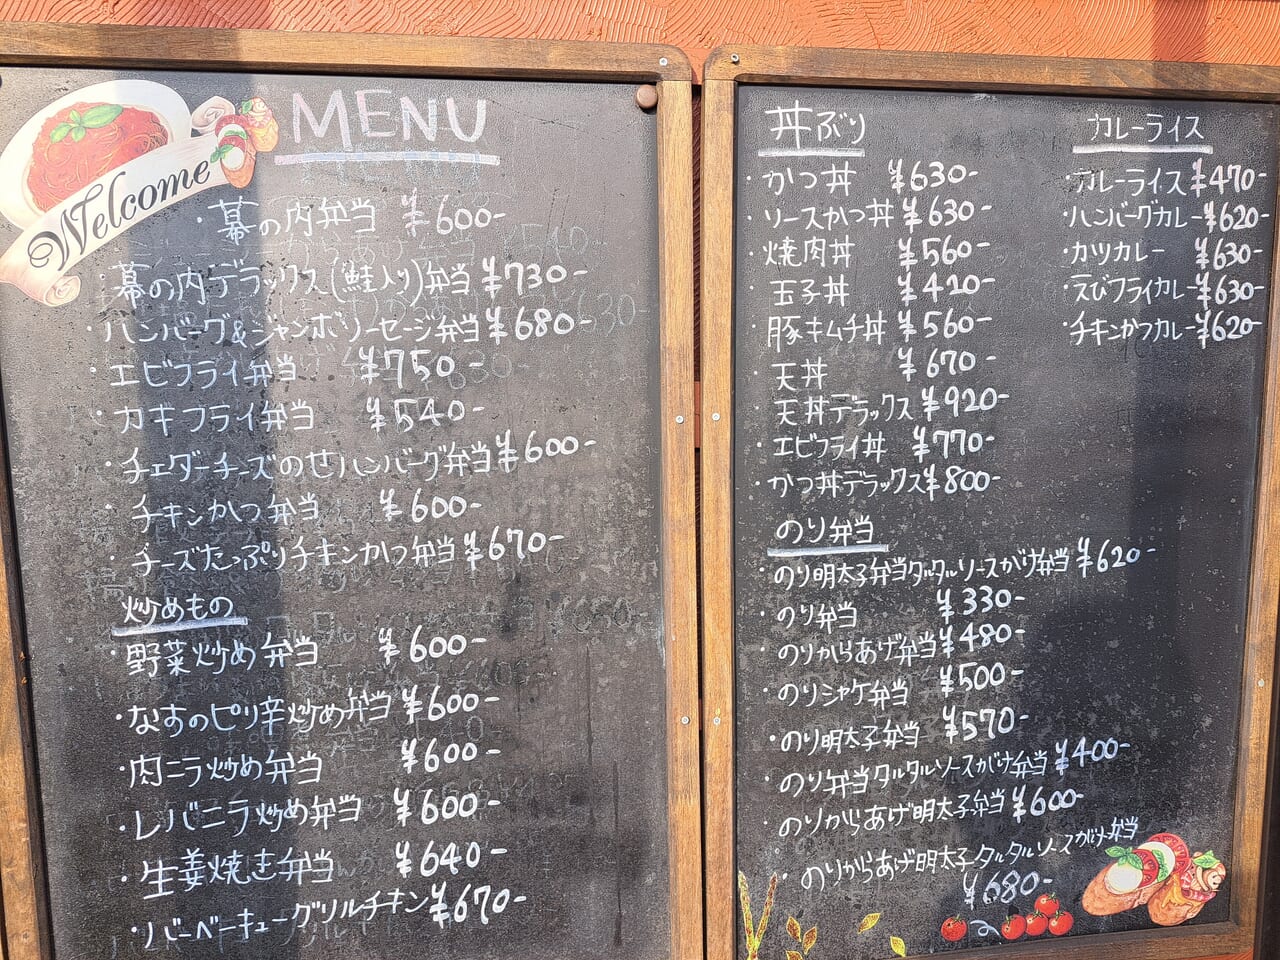 Welcome
MENU
・幕の内弁当 ¥600-
・幕の内デラックス(鮭入り)弁当 ¥730-
・ハンバーグ&ジャンボソーセージ弁当 ¥680-
・エビフライ弁当 ¥750-
・カキフライ弁当 ¥540-
・チェダーチーズのせハンバーグ弁当 ¥600-
・チキンかつ弁当 ¥600-
・チーズたっぷりチキンかつ弁当 ¥670-
炒めもの
・野菜炒め弁当 ¥600-
・なすのピリ辛炒め弁当 ¥600-
・肉ニラ炒め弁当 ¥600-
・レバニラ炒め弁当 ¥600-
・生姜焼き弁当 ¥640-
・バーベーキューグリルチキン ¥670-
丼ぶり
・かつ丼 ¥630-
・ソースかつ丼 ¥630-
・焼肉丼 ¥560-
・玉子丼 ¥420-
・豚キムチ丼 ¥560-
・天丼 ¥670-
・天丼デラックス ¥920-
・エビフライ丼 ¥770-
・かつ丼デラックス ¥800-
カレーライス
・カレーライス ¥470-
・ハンバーグカレー ¥620-
・カツカレー ¥630-
・えびフライカレー ¥630-
・チキンかつカレー ¥620-
のり弁当
・のり明太子弁当タルタルソースがけ弁当 ¥620-
・のり弁当 ¥330-
・のりからあげ弁当 ¥480-
・のりシャケ弁当 ¥500-
・のり明太子弁当 ¥570-
・のり弁当タルタルソースがけ弁当 ¥400-
・のりからあげ明太子弁当 ¥600-
・のりからあげ明太子タルタルソースがけ弁当
¥680-